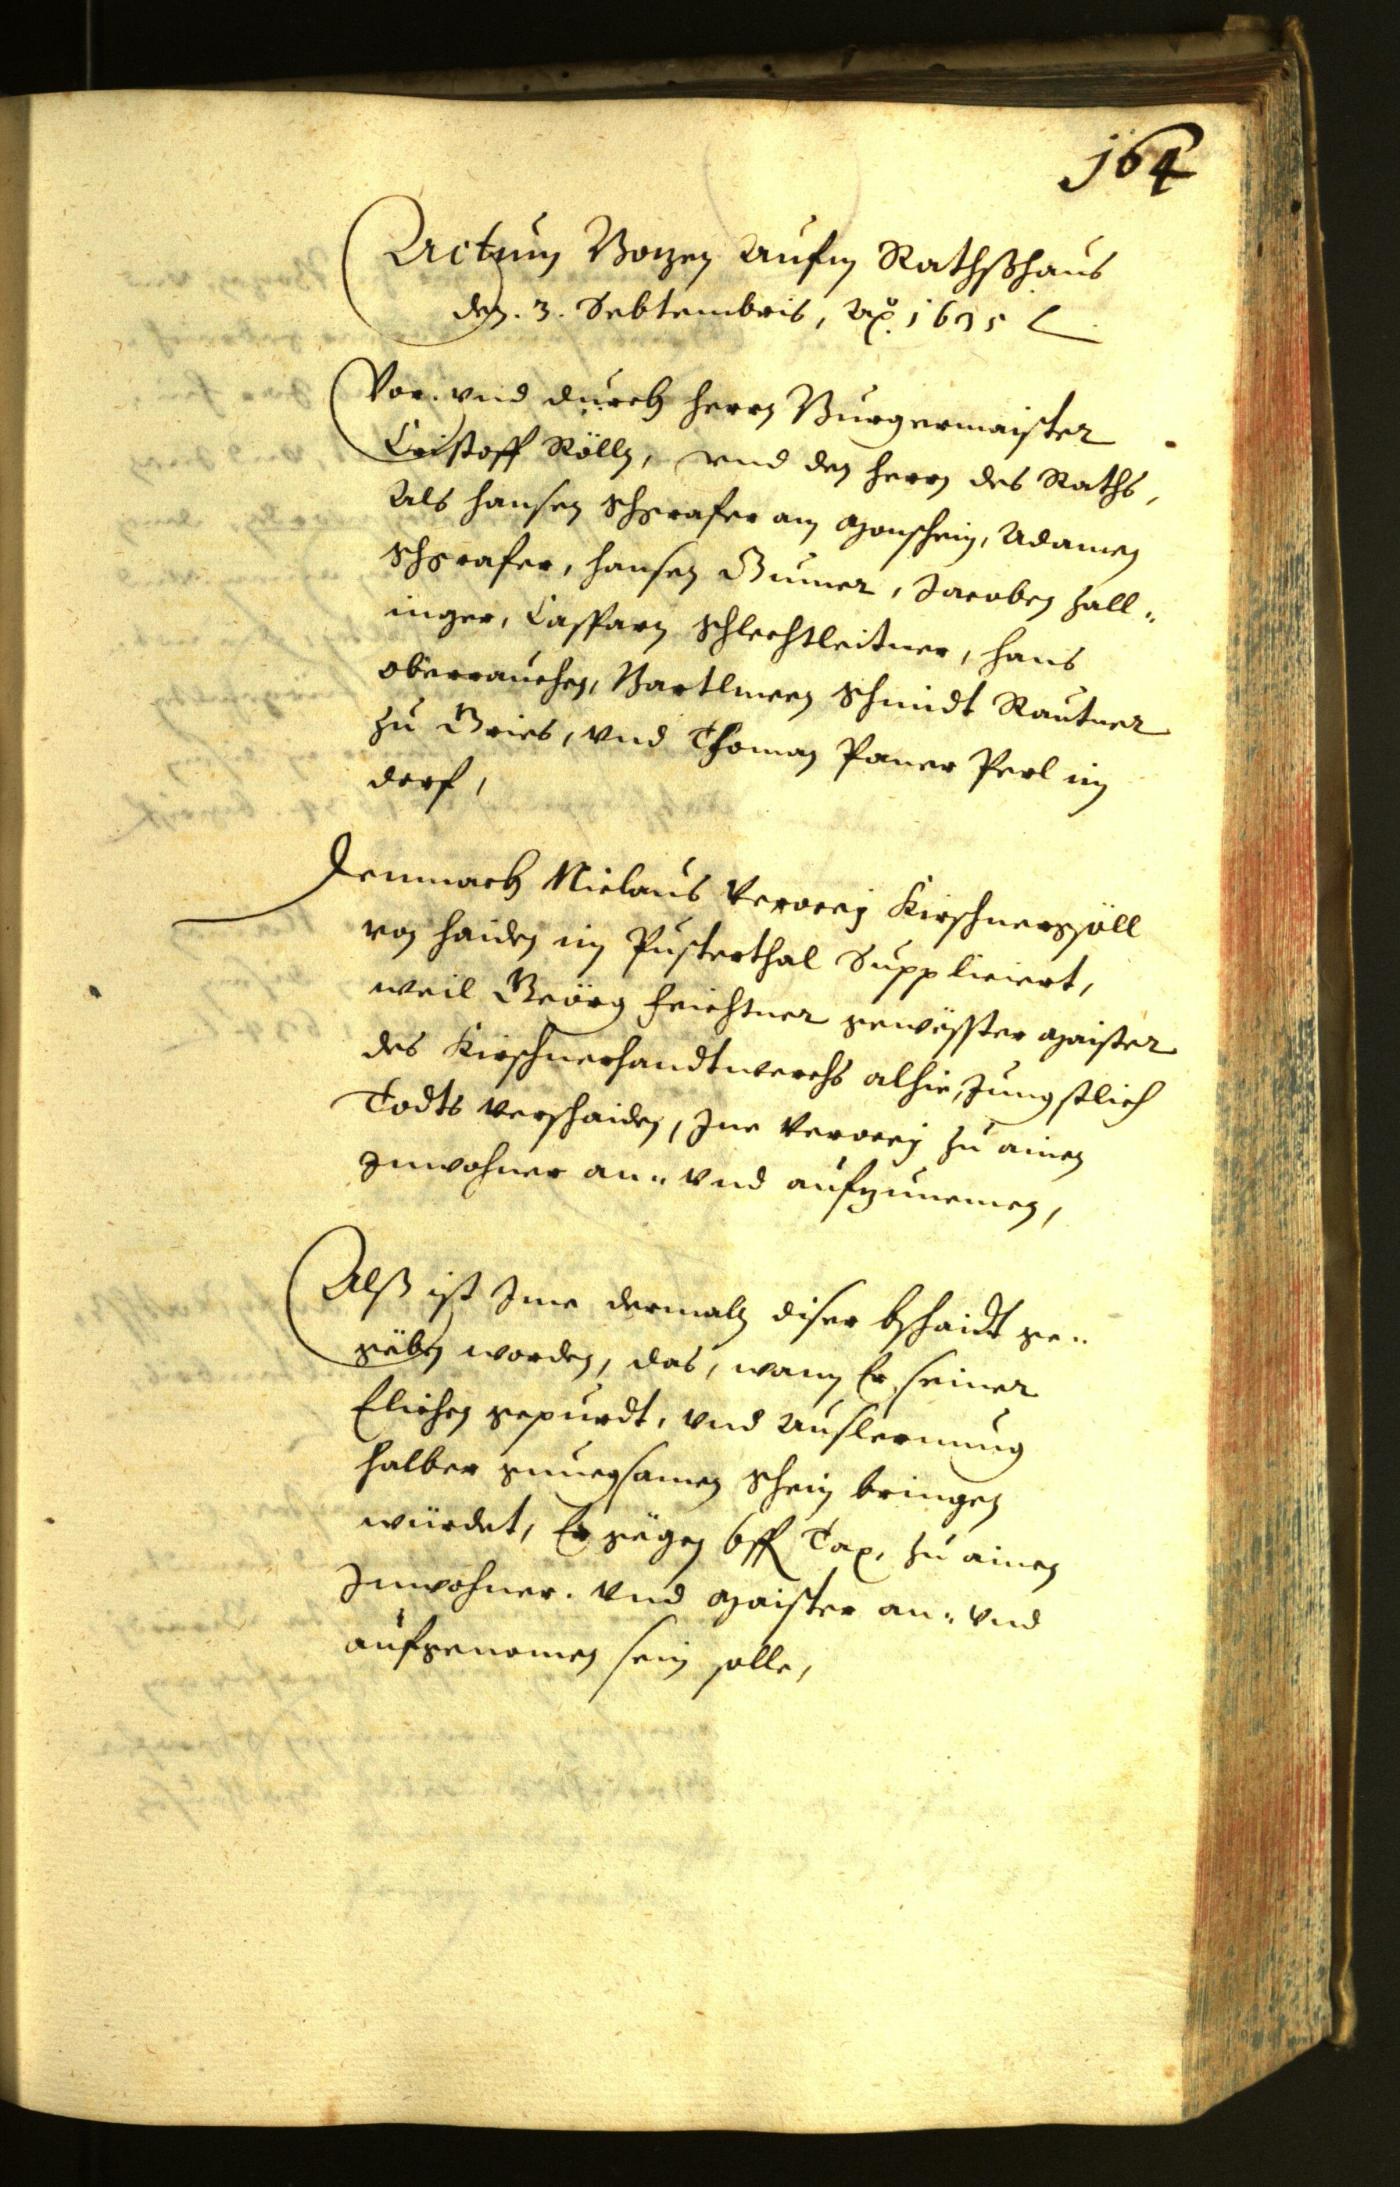 164
Actum Bozen Aufm Rathßhaus
den. 3. Septembris, Ao. 1635
Vor. vnd durch herrn Burgermaister
Cristoff Rölln, vnd den herrn des Raths,
Als hansen Schgrafer am Monschein, Adamen
Schgrafer, hansen Gumer, Jacoben Zall-
inger, Casparn Schlechtleitner, hans
oberrauchen, Bartlmeen Schmidt Rautner
zu Gries, vnd Thoman Paner Perl im
dorf,
Demnach Niclaus Kirschnersgsöll
von haiden im Pusterthal Suppliciert,
weil Geörg feichtner gewesster Maister
des Kirschnerhandtwerchs alhie, Jungstlich
Todts verschaiden, Jne zu ainen
Jnwohner an- vnd aufzunemen,
Alß ist Jme dermaln diser bschaidt ge-
geben worden, das, wann Er seiner
Elichen gepurdt, vnd Auslernung
halber gnuegsamen Schein bringen
würdet, Er gegen 6 fl Tax, zu ainen
Jnwohner. vnd Maister an- vnd
aufgenomen sein solle,